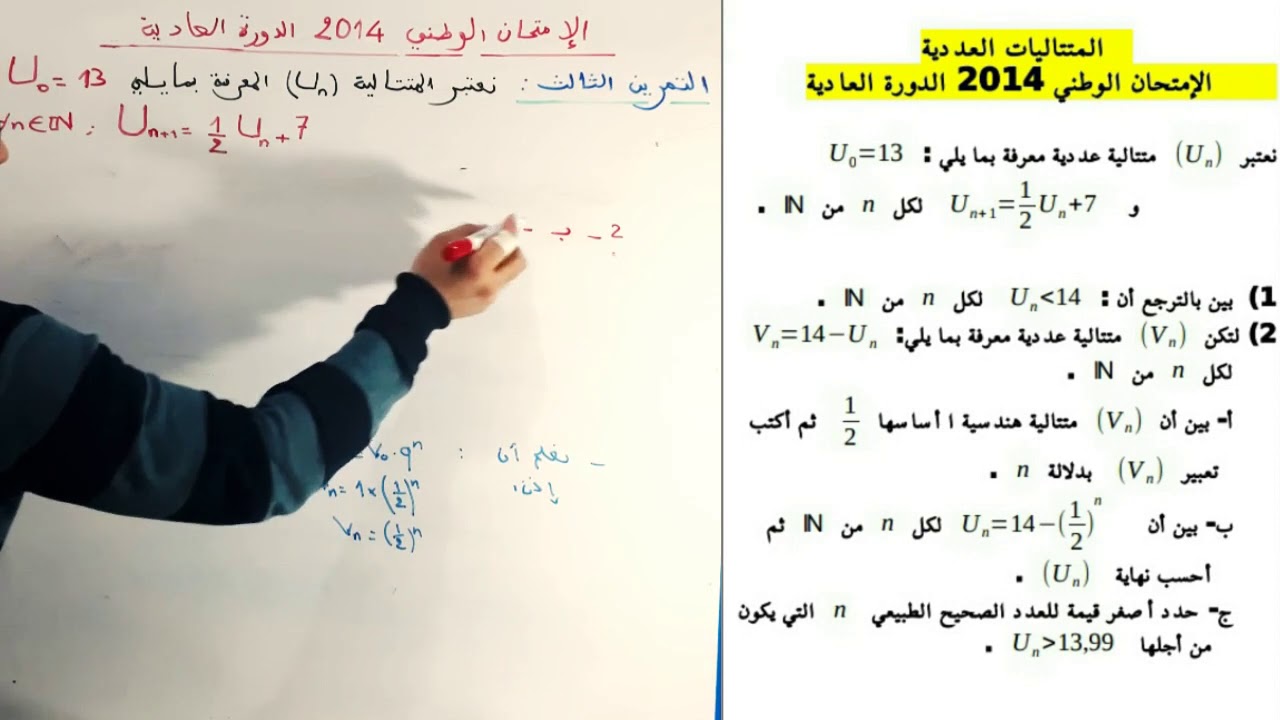 الإمتحان الوطني 2014 الدورة العادية
التمرين الثالث : نعتبر المتتالية (Un) المعرفة بمايلي U₀ = 13
∀n∈ℕ ; Un+1 = 1/2 Un + 7
2 - ب -
- نعلم أن : = V₀ . qⁿ
إذن: n = 1 × (1/2)ⁿ
Vn = (1/2)ⁿ
المتتاليات العددية
الإمتحان الوطني 2014 الدورة العادية
نعتبر (Un) متتالية عددية معرفة بما يلي : U0=13
و Un+1=1/2 Un+7 لكل n من ℕ .
1) بين بالترجع أن : Un<14 لكل n من ℕ .
2) لتكن (Vn) متتالية عددية معرفة بما يلي: Vn=14−Un
لكل n من ℕ .
أ- بين أن (Vn) متتالية هندسية ا أساسها 1/2 ثم أكتب
تعبير (Vn) بدلالة n .
ب- بين أن Un=14−(1/2)ⁿ لكل n من ℕ ثم
أحسب نهاية (Un) .
ج- حدد أصغر قيمة للعدد الصحيح الطبيعي n التي يكون
من أجلها Un>13,99 .